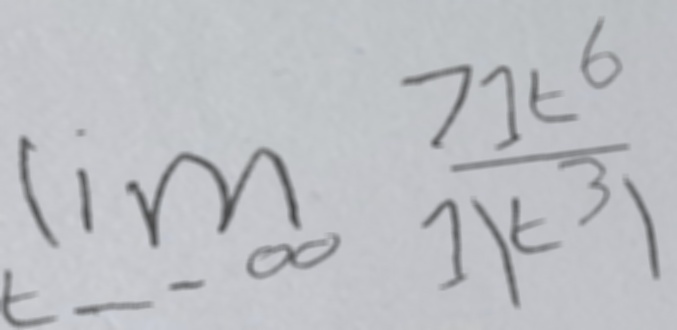 lim_{t → -∞} \frac{71t^6}{1|t^3|}